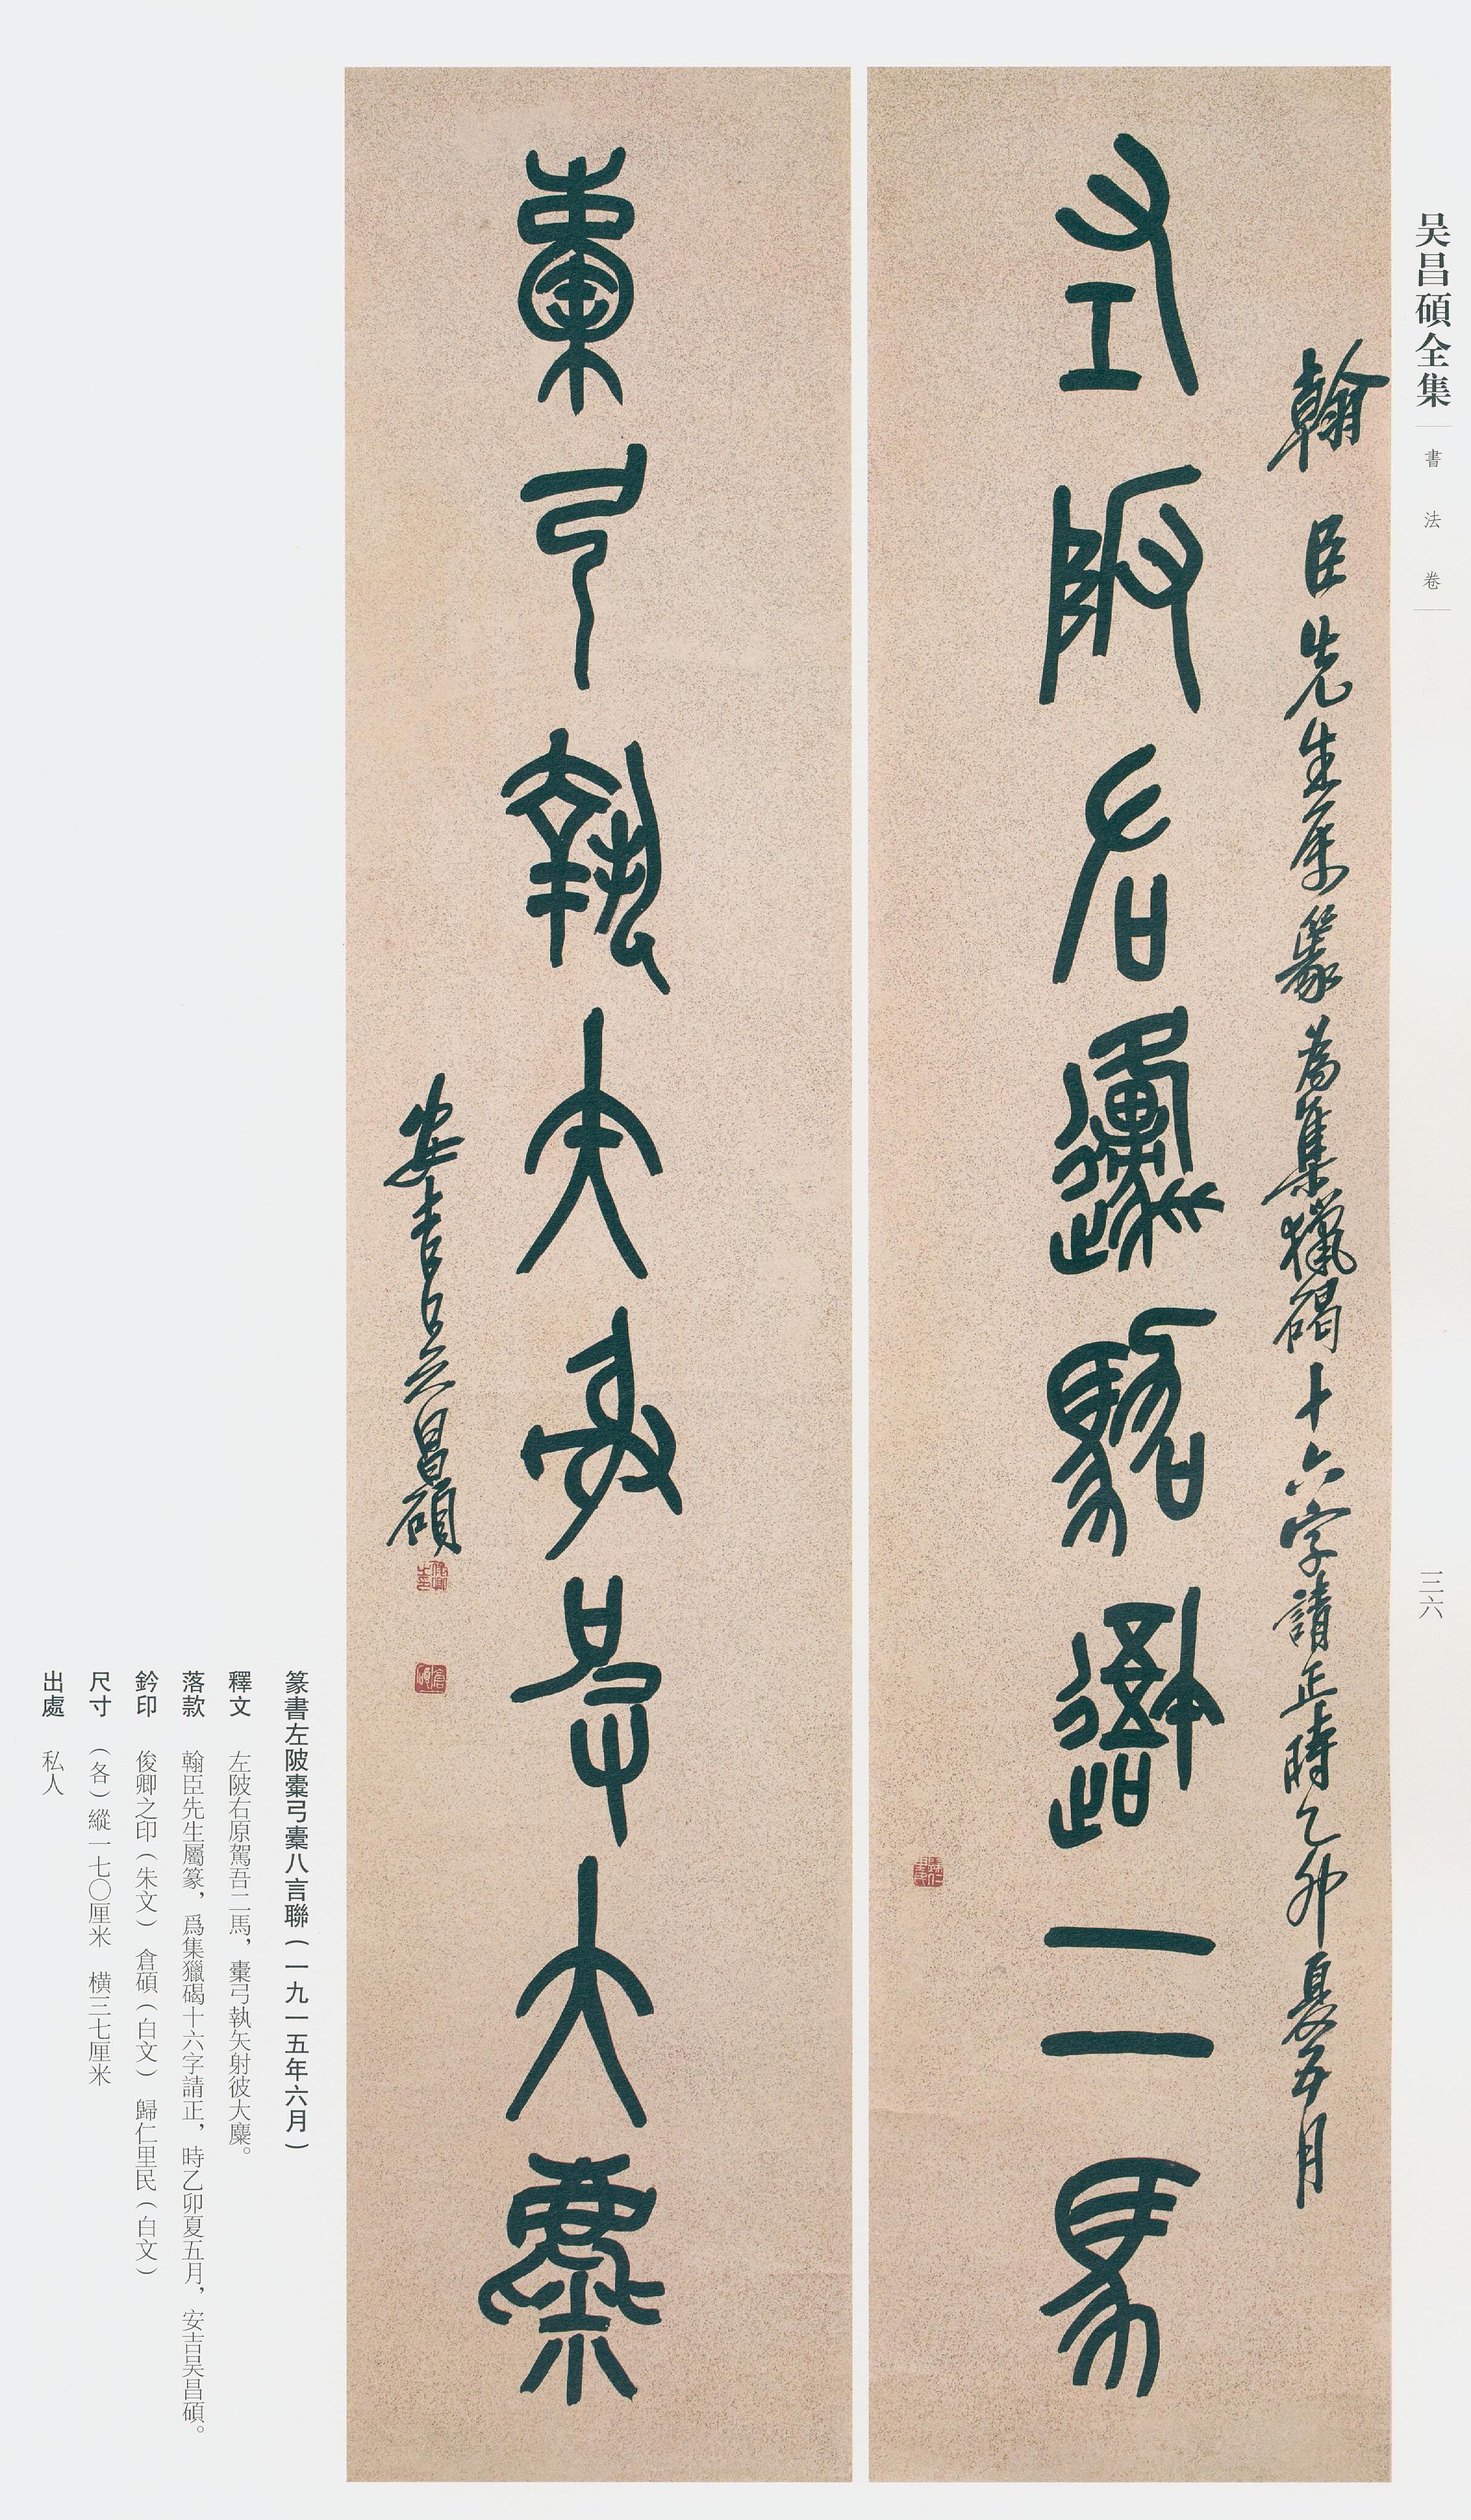 吴昌碩全集
書法卷
三六
翰臣先生属篆為集獵碣十六字請正時乙卯夏五月
左陂右原駕吾二馬
橐弓執矢射彼大麋
安吉吴昌碩
俊卿之印
倉碩
歸仁里民
篆書左陂橐弓橐八言聯（一九一五年六月）
釋文 左陂右原駕吾二馬，橐弓執矢射彼大麋。
落款 翰臣先生屬篆，爲集獵碣十六字請正，時乙卯夏五月，安吉吴昌碩。
鈐印 俊卿之印（朱文） 倉碩（白文） 歸仁里民（白文）
尺寸 （各）縱一七〇厘米 横三七厘米
出處 私人